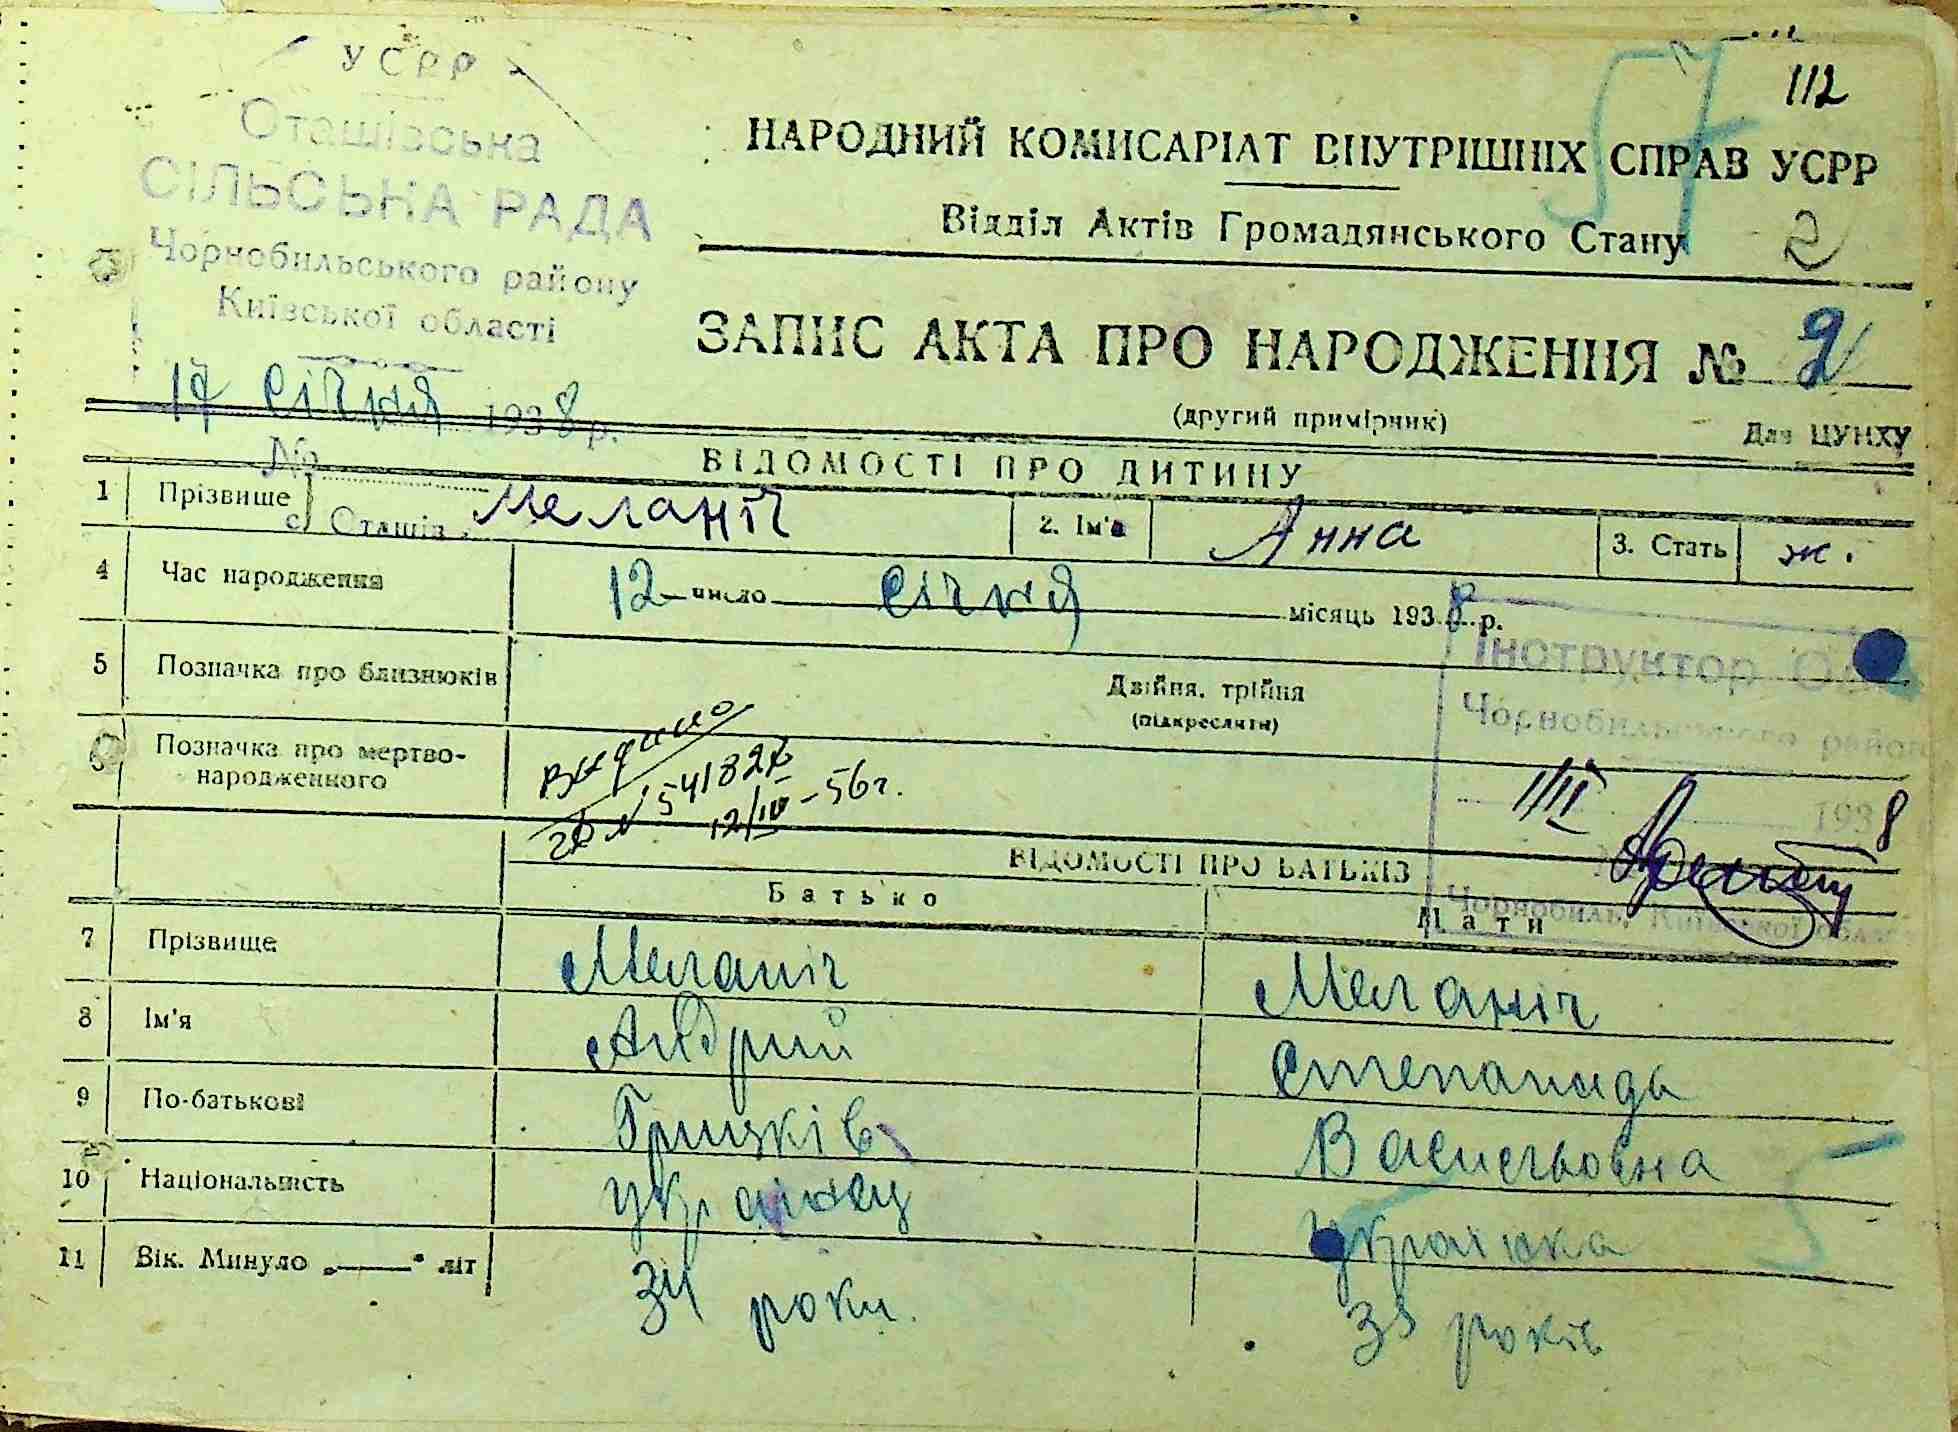 112
57
УСРР
Оташівська
СІЛЬСЬКА РАДА
Чорнобильського району
Київської області
17 січня 1938 р.
№
с. Оташів
НАРОДНИЙ КОМИСАРІАТ ВНУТРІШНІХ СПРАВ УСРР
Відділ Актів Громадянського Стану 2
ЗАПИС АКТА ПРО НАРОДЖЕННЯ № 2
(другий примірник) Для ЦУНХУ
ВІДОМОСТІ ПРО ДИТИНУ
1 Прізвище Меланіч 2. Ім'я Анна 3. Стать ж.
4 Час народження 12 число січня місяць 1938 р.
5 Позначка про близнюків Двійня, трійня
(підкреслити)
Інструктор
Чорнобильського району
1/II 1938
Чорнобиль, Київської області
6 Позначка про мертво-
народженного
Видано
541827
12/IV-56г.
ВІДОМОСТІ ПРО БАТЬКІВ
Батько Мати
7 Прізвище Меланіч Меланіч
8 Ім'я Андрий Степанида
9 По-батькові Грицків Васильовна
10 Національність українец українка
11 Вік. Минуло „ — " літ 34 роки. 35 років